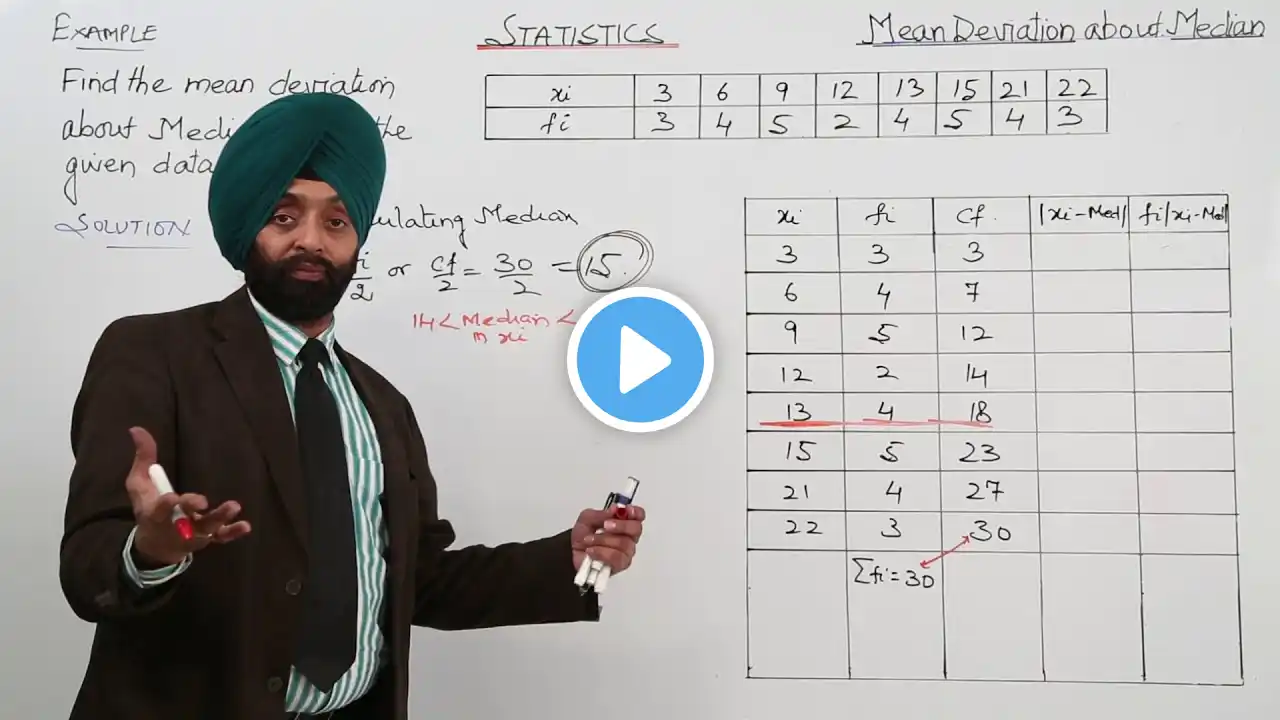 EXAMPLE
STATISTICS
Mean Deviation about Median
Find the mean deviation
about the
given data
xi 3 6 9 12 13 15 21 22
fi 3 4 5 2 4 5 4 3
SOLUTION
Median
2 or cf/2 = 30/2 = 15
14 < Median <
in xi
xi fi Cf. |xi-Med| fi|xi-Med|
3 3 3
6 4 7
9 5 12
12 2 14
13 4 18
15 5 23
21 4 27
22 3 30
Σfi = 30